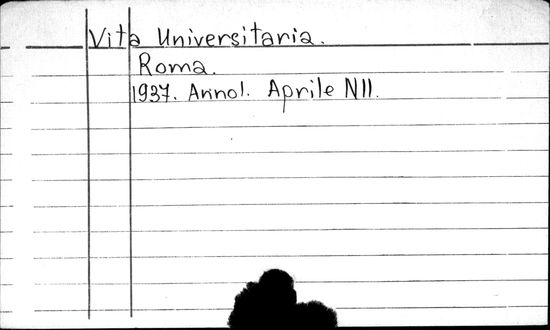 Vita Universitaria.
Roma.
1937. Anno I. Aprile N11.